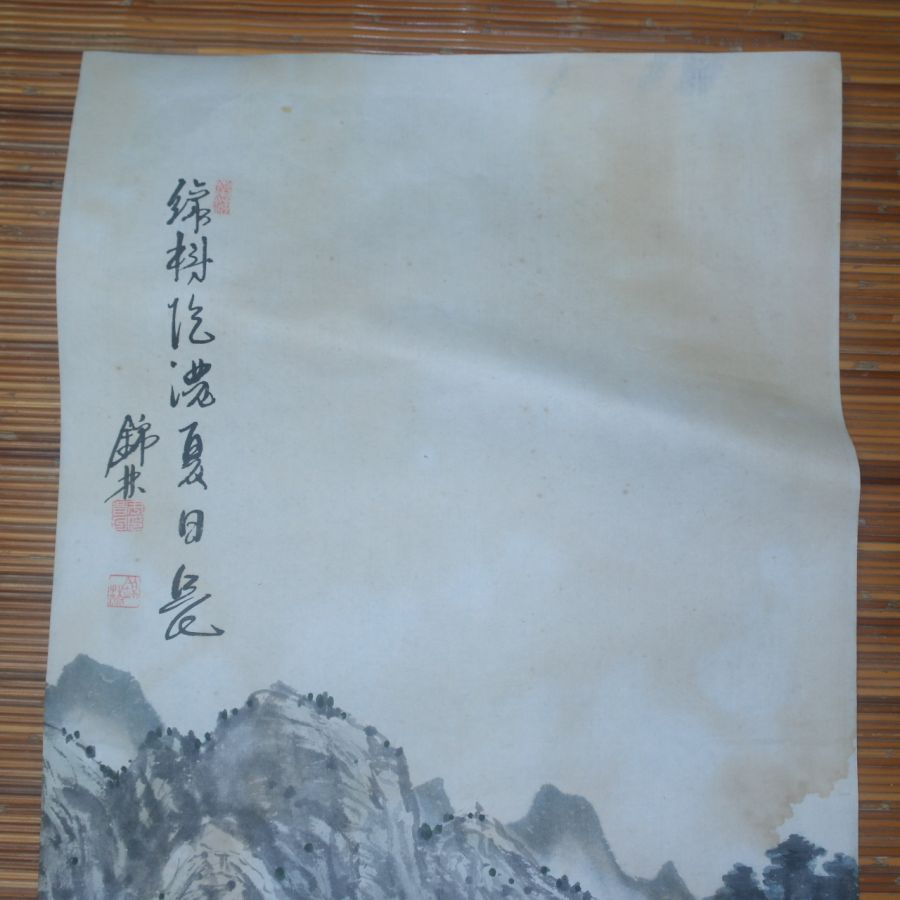 綠樹陰濃夏日長
錦林